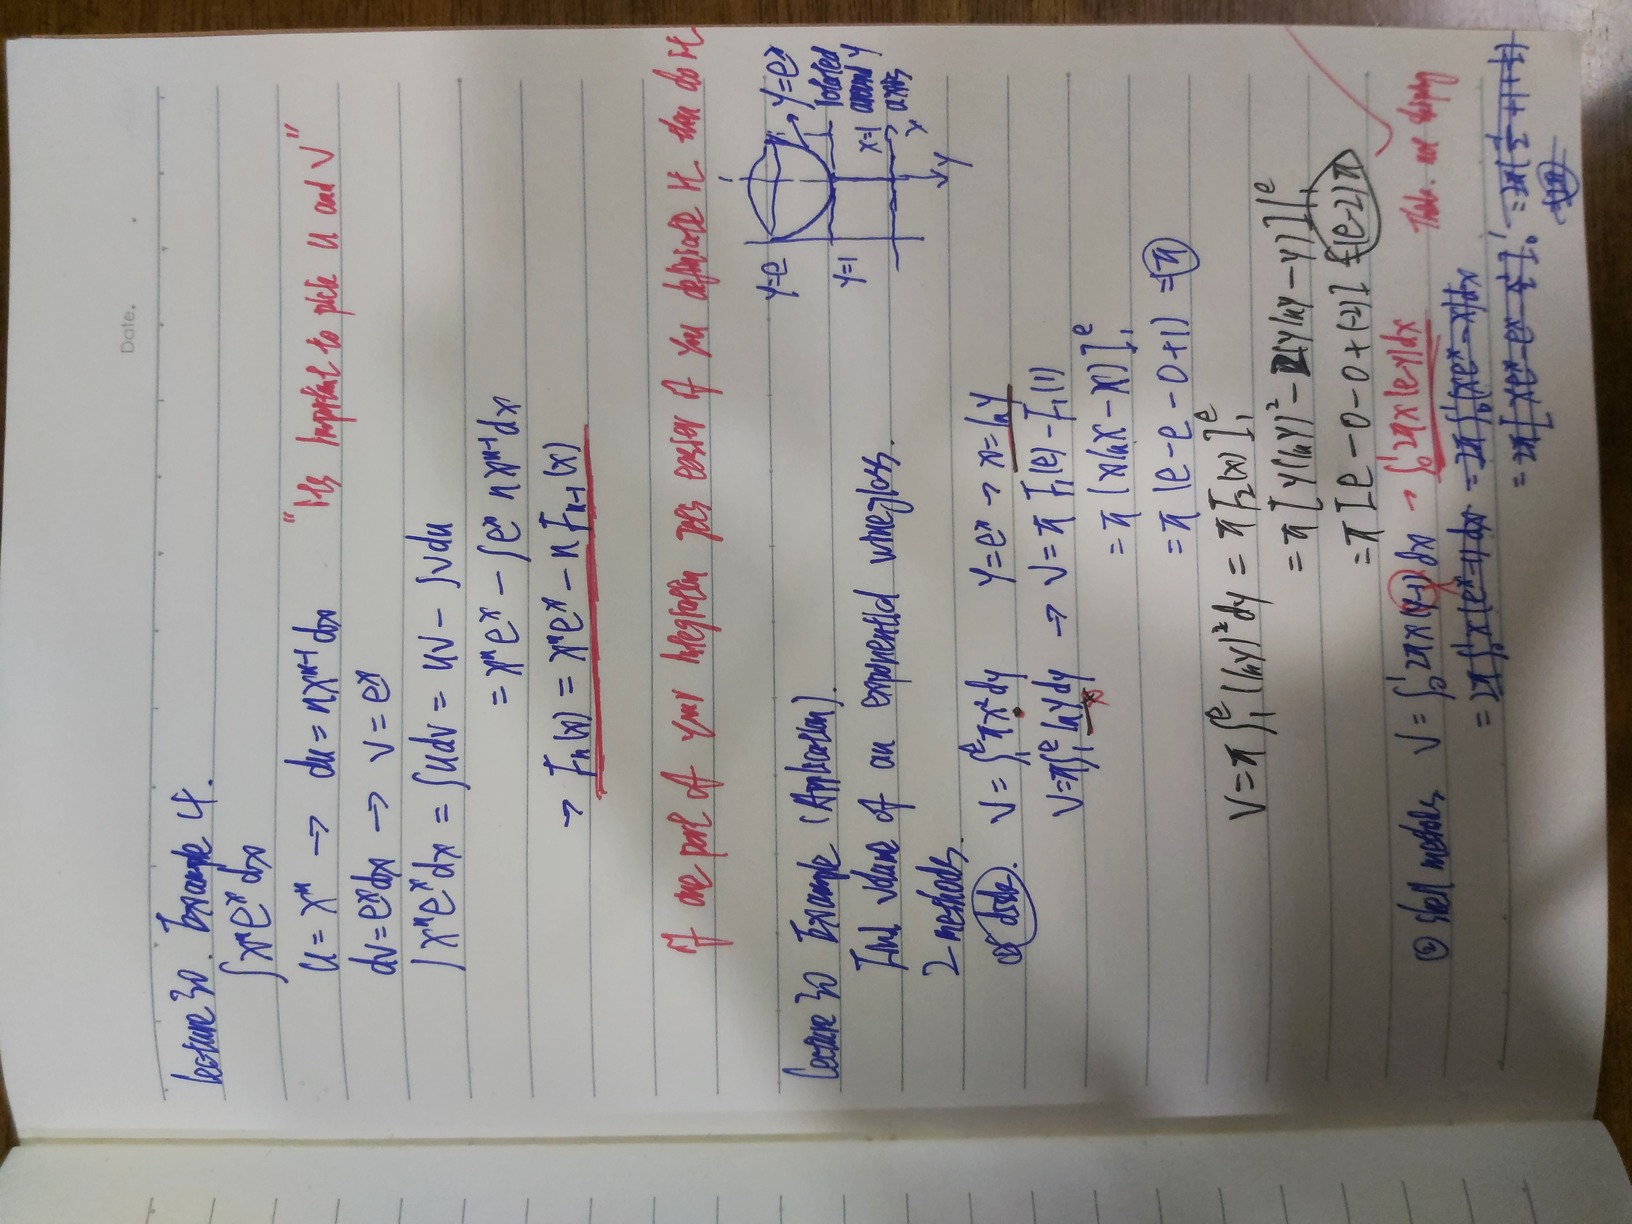 Date.
Lecture 30. Example 4.
∫xⁿeˣdx
u = xⁿ → du = nxⁿ⁻¹dx "It's important to pick u and v"
dv = eˣdx → v = eˣ
∫xⁿeˣdx = ∫udv = uv − ∫vdu
= xⁿeˣ − ∫eˣ nxⁿ⁻¹dx
→ Fₙ(x) = xⁿeˣ − n Fₙ₋₁(x)
If one part of your integration goes easier if you it then do it
Lecture 30 Example (Application).
Find volume of an exponential wineglass.
2 methods.
y=e
y=1
y=eˣ
rotated
around y
axis
x=1
x
y
① disk. V = ∫₁ᵉ πx²dy y=eˣ → x=lny
V=π∫₁ᵉ lny dy → V = π F₁(e) − F₁(1)
= π (xlnx − x)]₁ᵉ
= π (e − e − 0 + 1) = π
V = π∫₁ᵉ (lny)²dy = πF₂(x)]₁ᵉ
= π[y(lny)² − 2(ylny − y)]|₁ᵉ
= π[e − 0 − 0 + (−2)] = (e−2)π
② shell methods V = ∫₀¹ 2πx(y−1)dx → ∫₀¹ 2πx(e−y)dx
= 2π∫₀¹ x(eˣ−1)dx = 2π∫₀¹ (xeˣ − x)dx
= 2π[xeˣ − eˣ − x²/2]₀¹